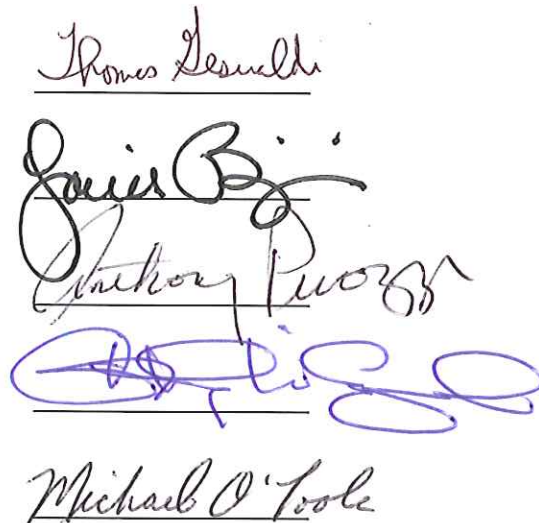 Thomas Gesualdi
Louis Bisi
Anthony Pirozzi
Michael O'Toole